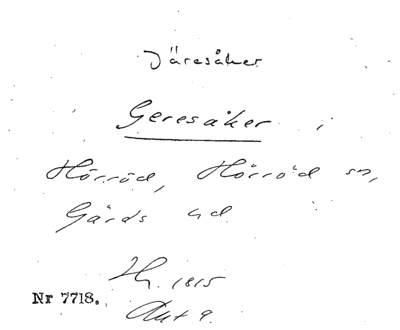 Järesåker
Geresåker i
Hörröd, Hörröd sn,
Gärds hd
Hy. 1815
Nr 7718. Akt 9.